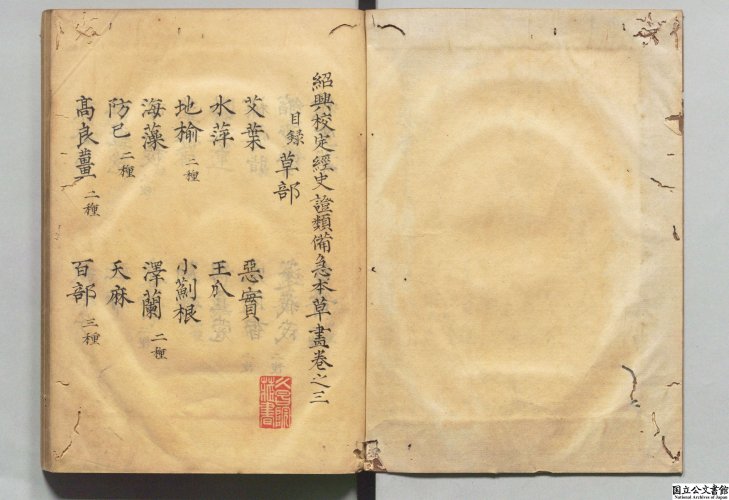 紹興校定經史證類備急本草畫卷之三
目録 草部
艾葉 惡實
水萍 王瓜
地榆 二種 小薊根
海藻 澤蘭 二種
防已 二種 天麻
高良薑 二種 百部 三種
国立公文書館
National Archives of Japan